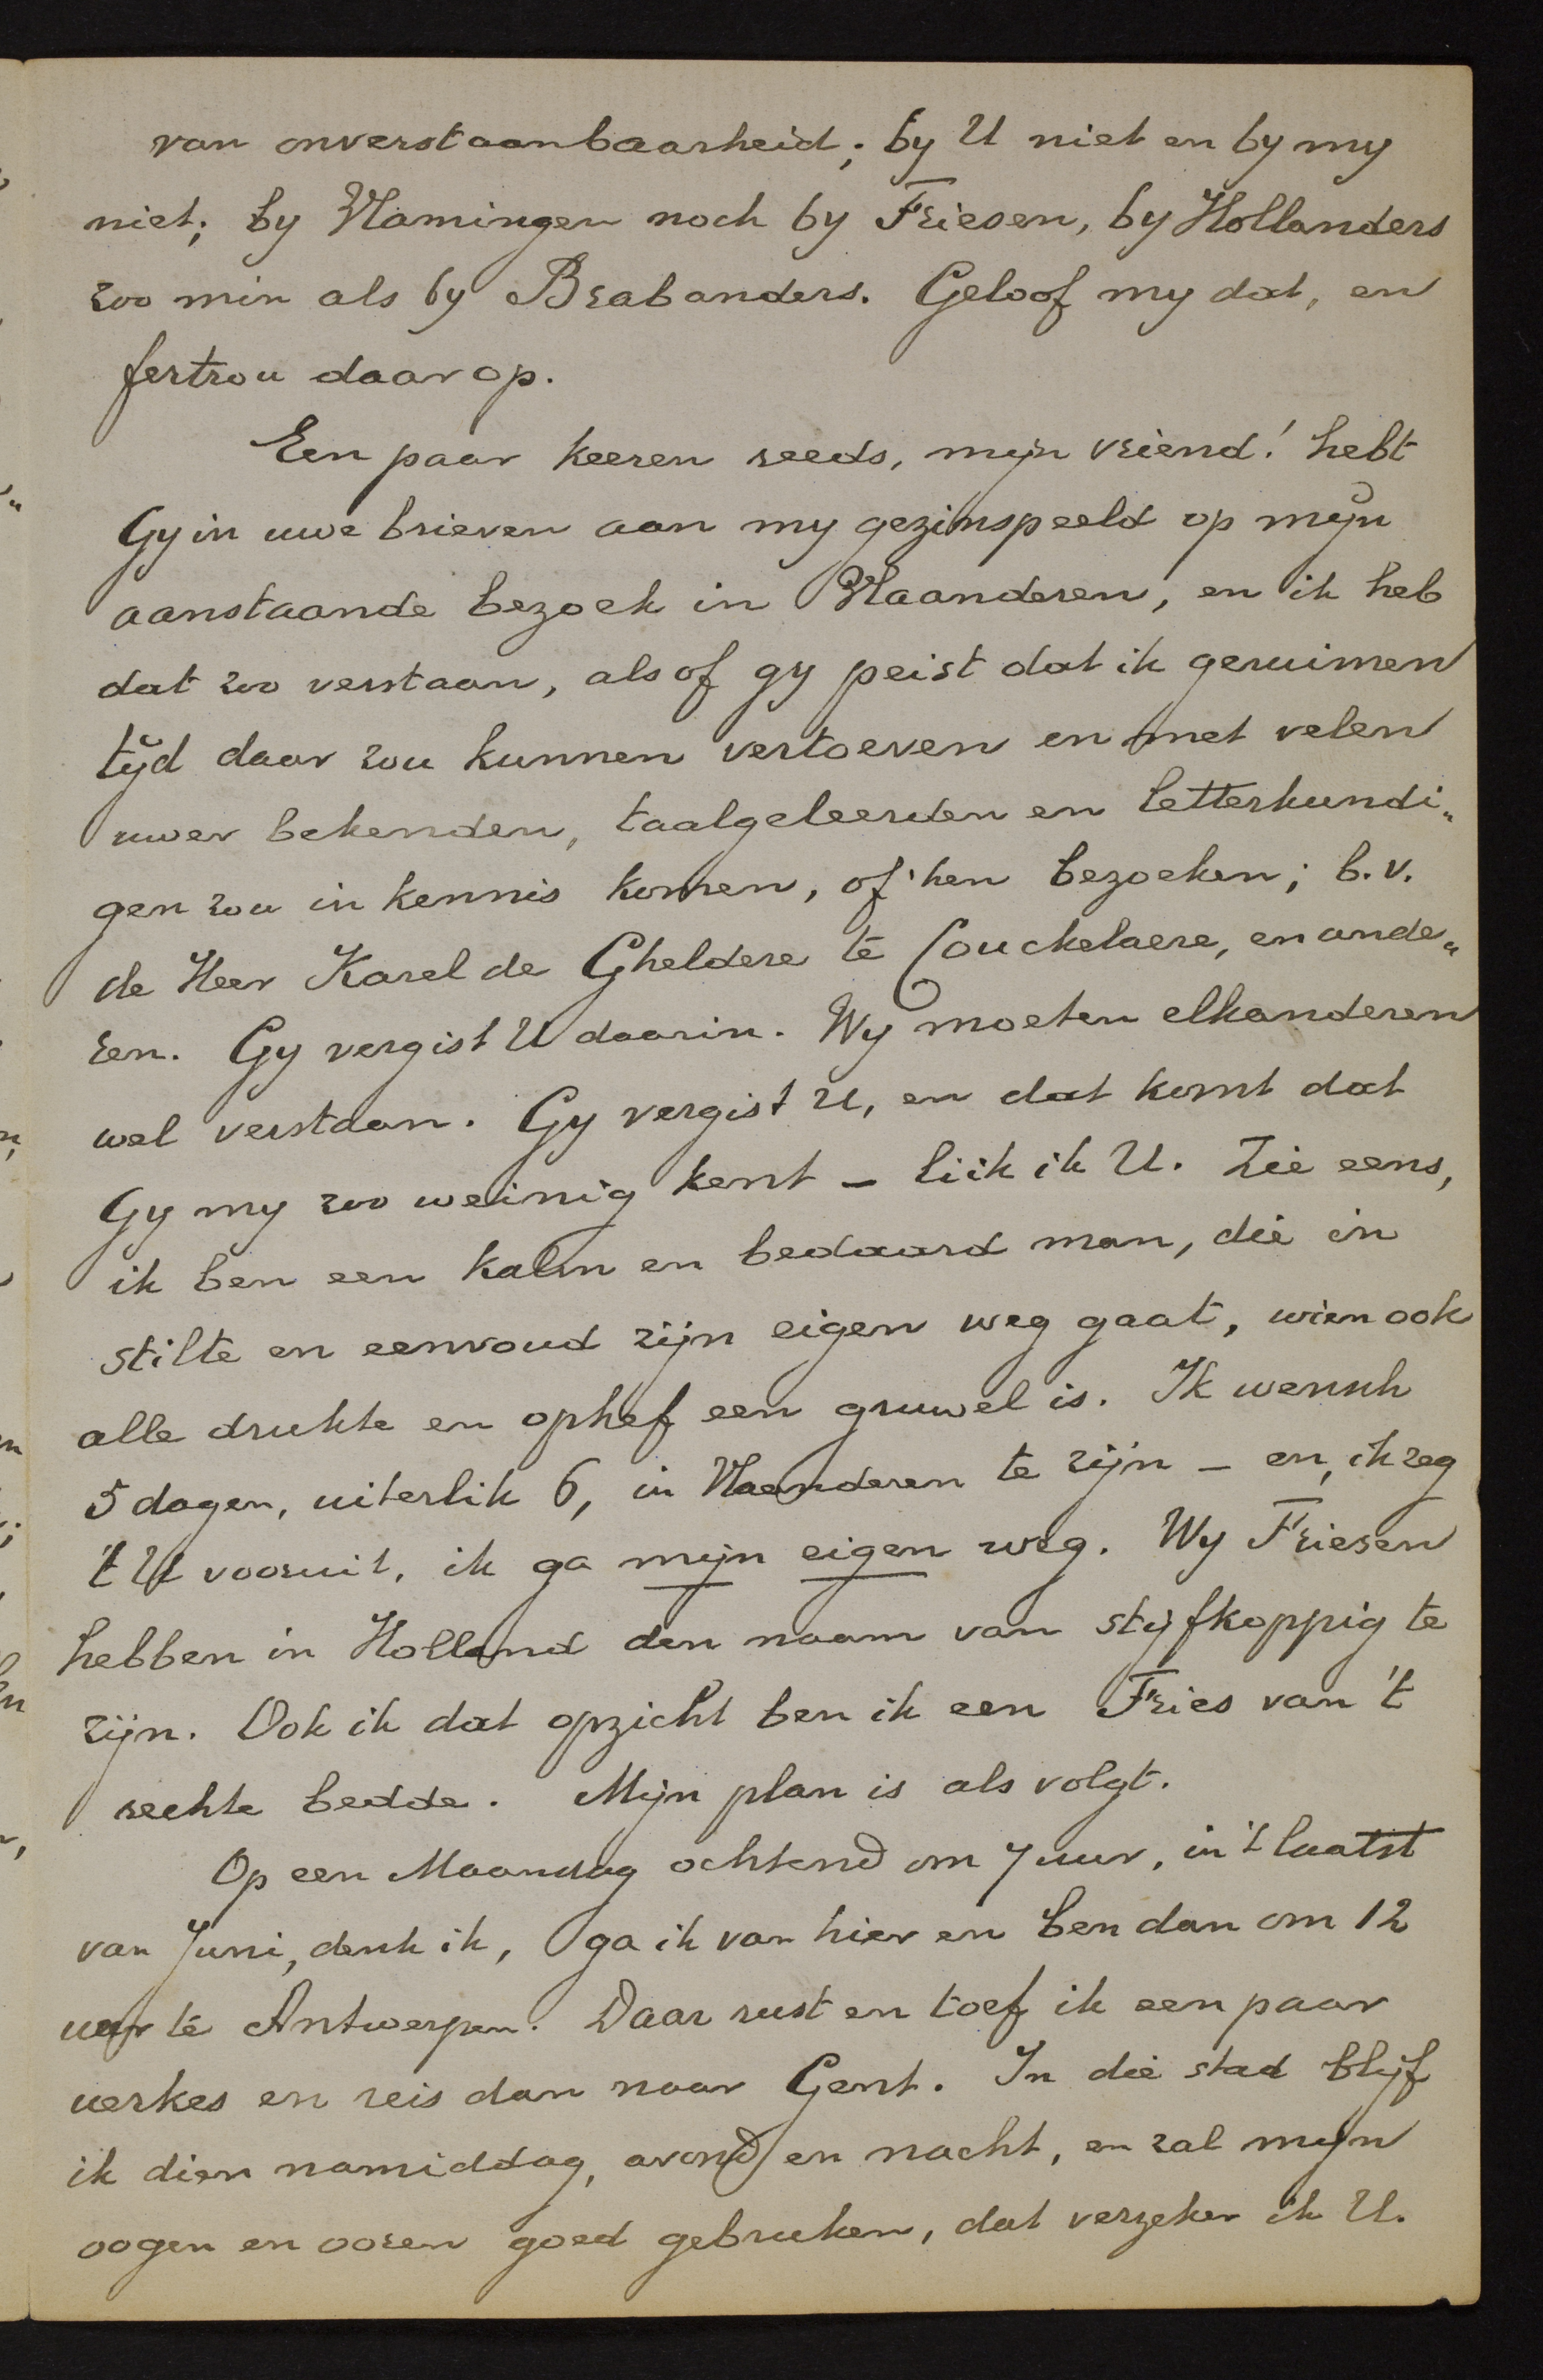 van onverstaanbaarheid; by U niet en by my
niet; by Vlamingen noch by Friesen, by Hollanders
zoo min als by Brabanders. Geloof my dat, en
fertrou daar op.
Een paar keeren reeds, mijn vriend! hebt
Gy in uwe brieven aan my gezinspeeld op mijn
aanstaande bezoek in Vlaanderen, en ik heb
dat zoo verstaan, als of gy peist dat ik geruimen
tijd daar zou kunnen vertoeven en met velen
uwer bekenden, taalgeleerden en letterkundi„
gen zou in kennis komen, of hen bezoeken; b.v.
de Heer Karel de Gheldere te Couckelaere, en ande„
ren. Gy vergist U daarin. Wy moeten elkanderen
wel verstaan. Gy vergist U, en dat komt dat
Gy my zoo weinig kent – liik ik U. Zie eens,
ik ben een kalm en bedaard man, die in
stilte en eenvoud zijn eigen weg gaat, wien ook
alle drukte en ophef een gruwel is. Ik wensch
5 dagen, uiterlik 6, in Vlaenderen te zijn – en, ik zeg
't U vooruit, ik ga mijn eigen weg. Wy Friesen
hebben in Holland den naam van stijfkoppig te
zijn. Ook ik dat opzicht ben ik een Fries van 't
rechte bedde. Mijn plan is als volgt.
Op een Maandag ochtend om 7 uur, in 't laatst
van Juni, denk ik, ga ik van hier en ben dan om 12
uur te Antwerpen. Daar rust en toef ik een paar
uerkes en reis dan naar Gent. In die stad blijf
ik dien namiddag, avond en nacht, en zal mijn
oogen en ooren goed gebruken, dat verzeker ik U.